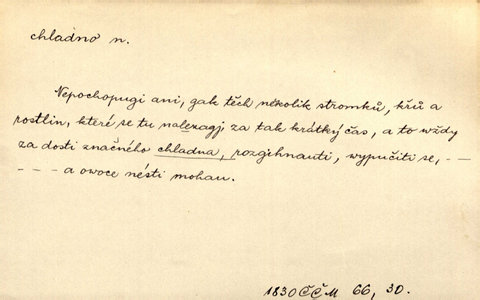 chladno n.
Nepochopugi ani, gak těch několik stromků, křů a
rostlin, které se tu nalezagj za tak krátký čas, a to wždy
za dosti značného chladna, rozgihnauti, wypučiti se, - -
- - - a owoce nésti mohau.
1830 ČČM 66, 30.